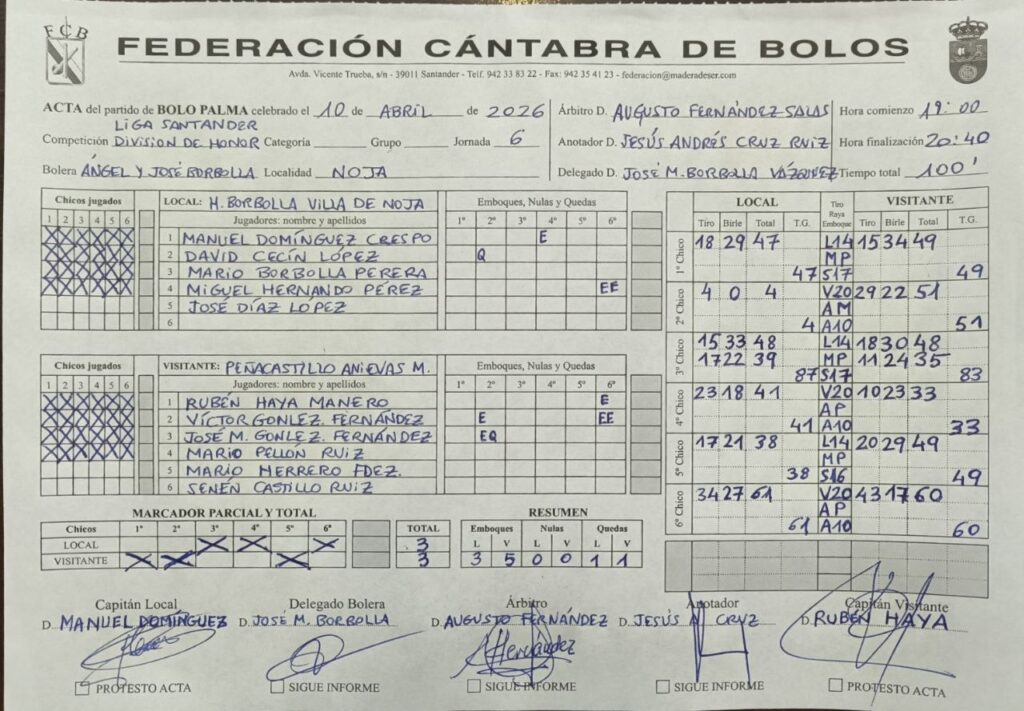 FCB
FEDERACIÓN CÁNTABRA DE BOLOS
Avda. Vicente Trueba, s/n - 39011 Santander - Telf. 942 33 83 22 - Fax: 942 35 41 23 - federacion@maderadeser.com
ACTA del partido de BOLO PALMA celebrado el 10 de ABRIL de 2026
LIGA SANTANDER
Competición DIVISION DE HONOR Categoría Grupo Jornada 6
Bolera ÁNGEL Y JOSÉ BORBOLLA Localidad NOJA
Árbitro D. AUGUSTO FERNÁNDEZ SALAS
Anotador D. JESÚS ANDRÉS CRUZ RUIZ
Delegado D. JOSÉ M. BORBOLLA VÁZQUEZ
Hora comienzo 19:00
Hora finalización 20:40
Tiempo total 100'
Chicos jugados
1 2 3 4 5 6
LOCAL: H. BORBOLLA VILLA DE NOJA
Jugadores: nombre y apellidos
Emboques, Nulas y Quedas
1º 2º 3º 4º 5º 6º
1 MANUEL DOMÍNGUEZ CRESPO E
2 DAVID CECÍN LÓPEZ Q
3 MARIO BORBOLLA PERERA
4 MIGUEL HERNANDO PÉREZ EE
5 JOSÉ DÍAZ LÓPEZ
6
Chicos jugados
1 2 3 4 5 6
VISITANTE: PEÑACASTILLO ANIEVAS M.
Jugadores: nombre y apellidos
Emboques, Nulas y Quedas
1º 2º 3º 4º 5º 6º
1 RUBÉN HAYA MANERO E
2 VÍCTOR GONLEZ FERNÁNDEZ E EE
3 JOSÉ M. GONLEZ. FERNÁNDEZ EQ
4 MARIO PELLÓN RUIZ
5 MARIO HERRERO FDEZ.
6 SENÉN CASTILLO RUIZ
MARCADOR PARCIAL Y TOTAL
Chicos 1º 2º 3º 4º 5º 6º TOTAL
LOCAL X X X 3
VISITANTE X X X 3
RESUMEN
Emboques Nulas Quedas
L V L V L V
3 5 0 0 1 1
LOCAL Tiro Raya Emboque VISITANTE
Tiro Birle Total T.G. Tiro Birle Total T.G.
1º Chico 18 29 47 L14 15 34 49
MP
47 S17 49
2º Chico 4 0 4 V20 29 22 51
AM
4 A10 51
3º Chico 15 33 48 L14 18 30 48
17 22 39 MP 11 24 35
87 S17 83
4º Chico 23 18 41 V20 10 23 33
AP
41 A10 33
5º Chico 17 21 38 L14 20 29 49
MP
38 S16 49
6º Chico 34 27 61 V20 43 17 60
AP
61 A10 60
Capitán Local Delegado Bolera Árbitro Anotador Capitán Visitante
D. MANUEL DOMÍNGUEZ D. JOSÉ M. BORBOLLA D. AUGUSTO FERNÁNDEZ D. JESÚS A CRUZ D. RUBÉN HAYA
PROTESTO ACTA SIGUE INFORME SIGUE INFORME SIGUE INFORME PROTESTO ACTA